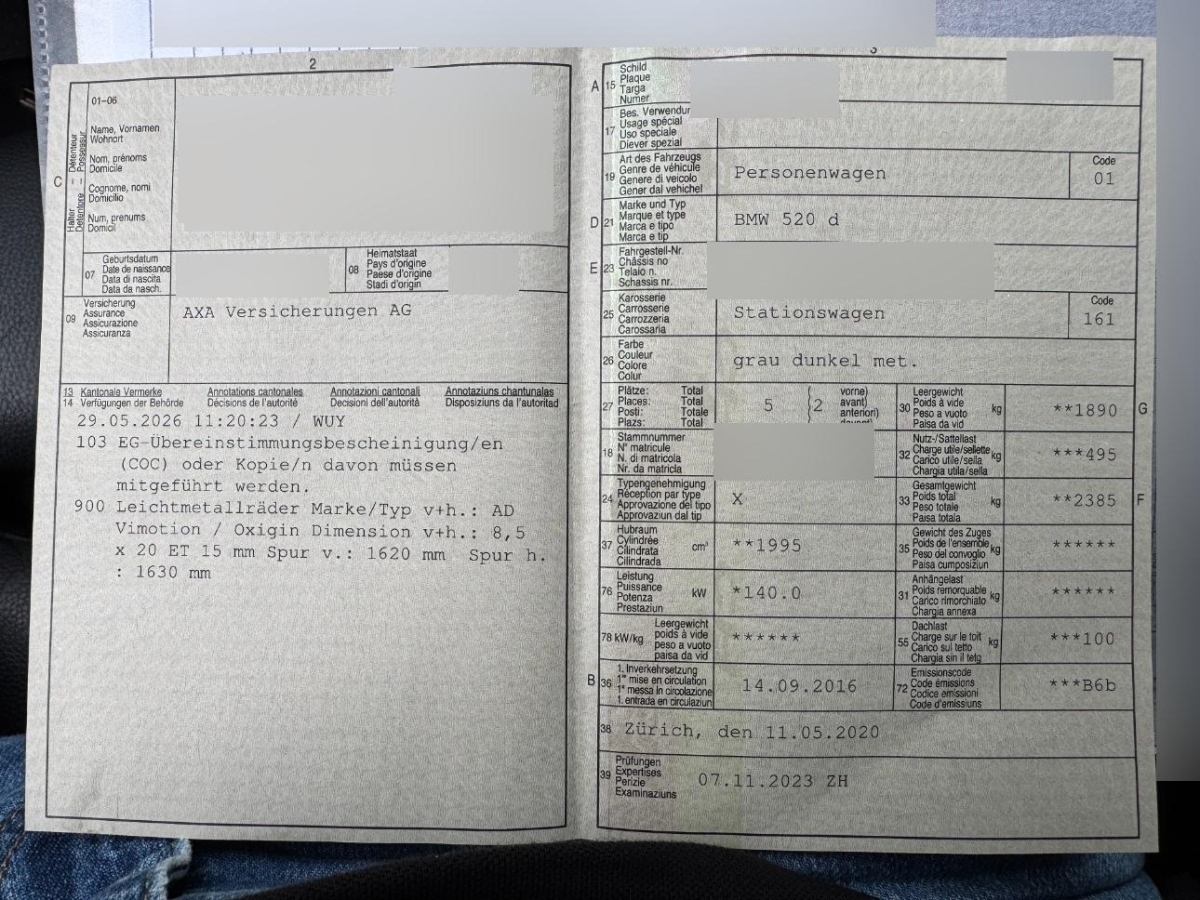 2
01–06
Halter – Détenteur
Detentore – Possessur
C
Name, Vornamen
Wohnort
Nom, prénoms
Domicile
Cognome, nomi
Domicilio
Num, prenums
Domicil
07
Geburtsdatum
Date de naissance
Data di nascita
Data da nasch.
08
Heimatstaat
Pays d'origine
Paese d'origine
Stadi d'origin
09
Versicherung
Assurance
Assicurazione
Assicuranza
AXA Versicherungen AG
13 Kantonale Vermerke Annotations cantonales Annotazioni cantonali Annotaziuns chantunalas
14 Verfügungen der Behörde Décisions de l'autorité Decisioni dell'autorità Disposiziuns da l'autoritad
29.05.2026 11:20:23 / WUY
103 EG-Übereinstimmungsbescheinigung/en
(COC) oder Kopie/n davon müssen
mitgeführt werden.
900 Leichtmetallräder Marke/Typ v+h.: AD
Vimotion / Oxigin Dimension v+h.: 8,5
x 20 ET 15 mm Spur v.: 1620 mm Spur h.
: 1630 mm
3
A 15
Schild
Plaque
Targa
Numer
17
Bes. Verwendun
Usage spécial
Uso speciale
Diever spezial
19
Art des Fahrzeugs
Genre de véhicule
Genere di veicolo
Gener dal vehichel
Personenwagen
Code
01
D 21
Marke und Typ
Marque et type
Marca e tipo
Marca e tip
BMW 520 d
E 23
Fahrgestell-Nr.
Châssis no
Telaio n.
Schassis nr.
25
Karosserie
Carrosserie
Carrozzeria
Carossaria
Stationswagen
Code
161
26
Farbe
Couleur
Colore
Colur
grau dunkel met.
27
Plätze: Total
Places: Total
Posti: Totale
Plazs: Total
5
2
vorne)
avant)
anteriori)
30
Leergewicht
Poids à vide
Peso a vuoto
Paisa da vid
kg
**1890
G
18
Stammnummer
N° matricule
N. di matricola
Nr. da matricla
32
Nutz-/Sattellast
Charge utile/sellette
Carico utile/sella
Chargia utila/sella
kg
***495
24
Typengenehmigung
Réception par type
Approvazione del tipo
Approvaziun dal tip
X
33
Gesamtgewicht
Poids total
Peso totale
Paisa totala
kg
**2385
F
37
Hubraum
Cylindrée
Cilindrata
Cilindrada
cm³
**1995
35
Gewicht des Zuges
Poids de l'ensemble
Peso del convoglio
Paisa cumposiziun
kg
******
76
Leistung
Puissance
Potenza
Prestaziun
kW
*140.0
31
Anhängelast
Poids remorquable
Carico rimorchiato
Chargia annexa
kg
******
78 kW/kg
Leergewicht
poids à vide
peso a vuoto
paisa da vid
******
55
Dachlast
Charge sur le toit
Carico sul tetto
Chargia sin il tetg
kg
***100
B 36
1. Inverkehrsetzung
1re mise en circulation
1a messa in circolazione
1. entrada en circulaziun
14.09.2016
72
Emissionscode
Code émissions
Codice emissioni
Code d'emissiuns
***B6b
38
Zürich, den 11.05.2020
39
Prüfungen
Expertises
Perizie
Examinaziuns
07.11.2023 ZH